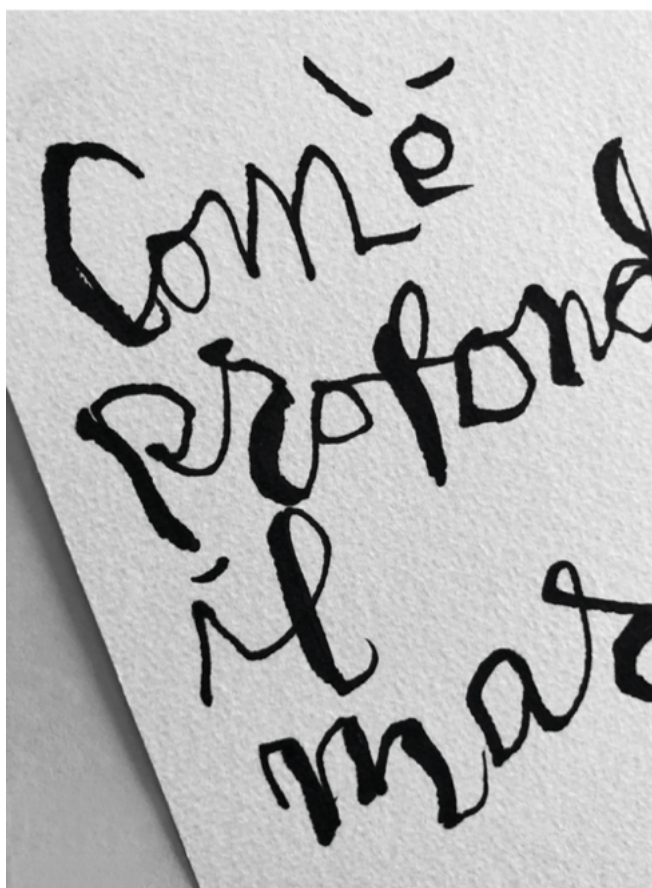 Com'è
profond
il
mar